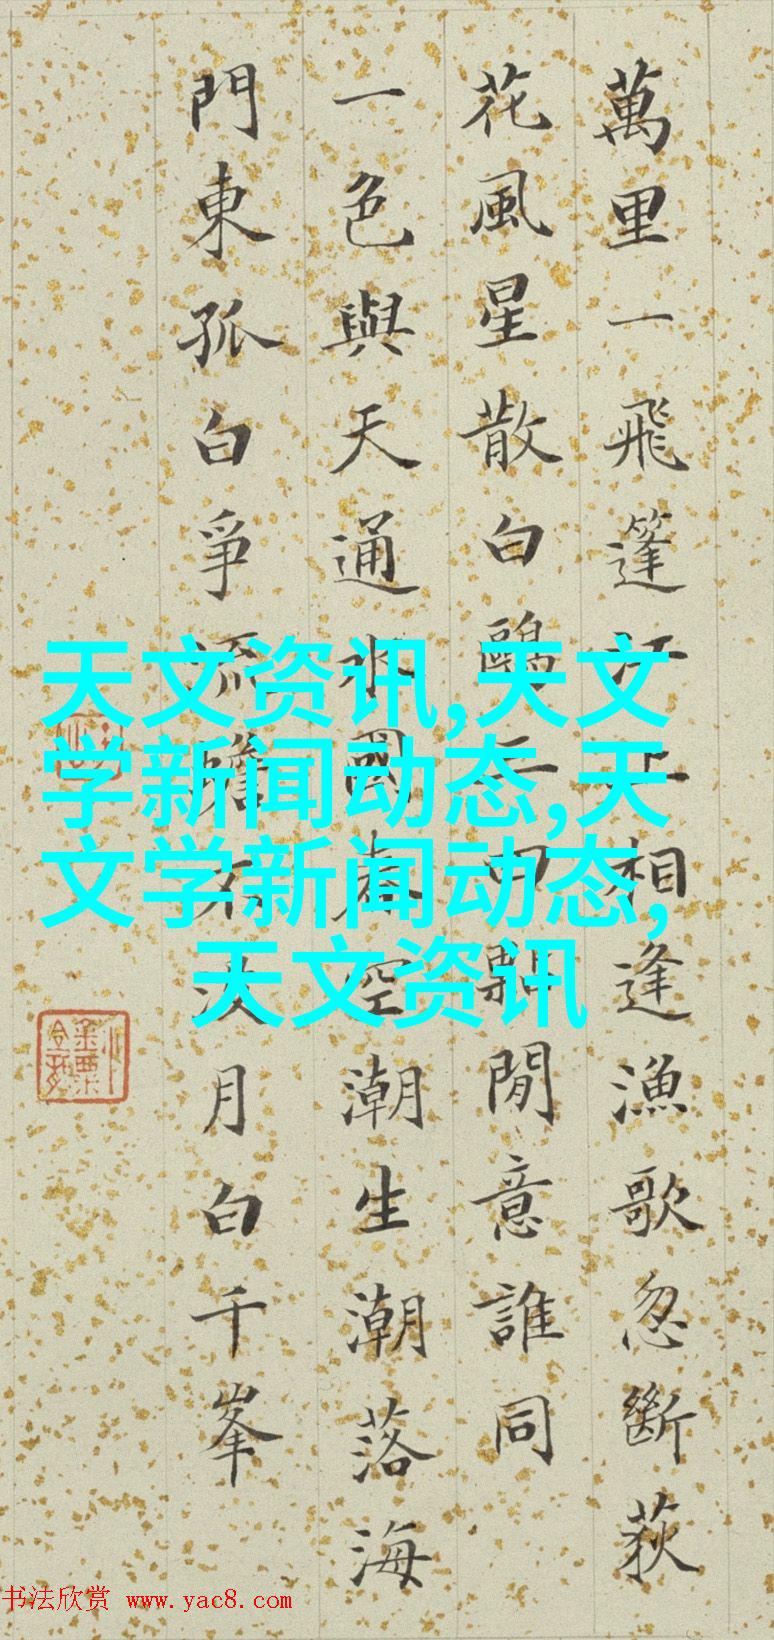 萬里一飛篷江上相逢漁歌忽斷荻
花風星散白鷗三四點閒意誰同
一色與天通水國春空潮生潮落海
門東孤白爭流蟾不月白千峯
天文资讯,天文
学新闻动态,天
文学新闻动态,
天文资讯
书法欣赏 www.yac8.com